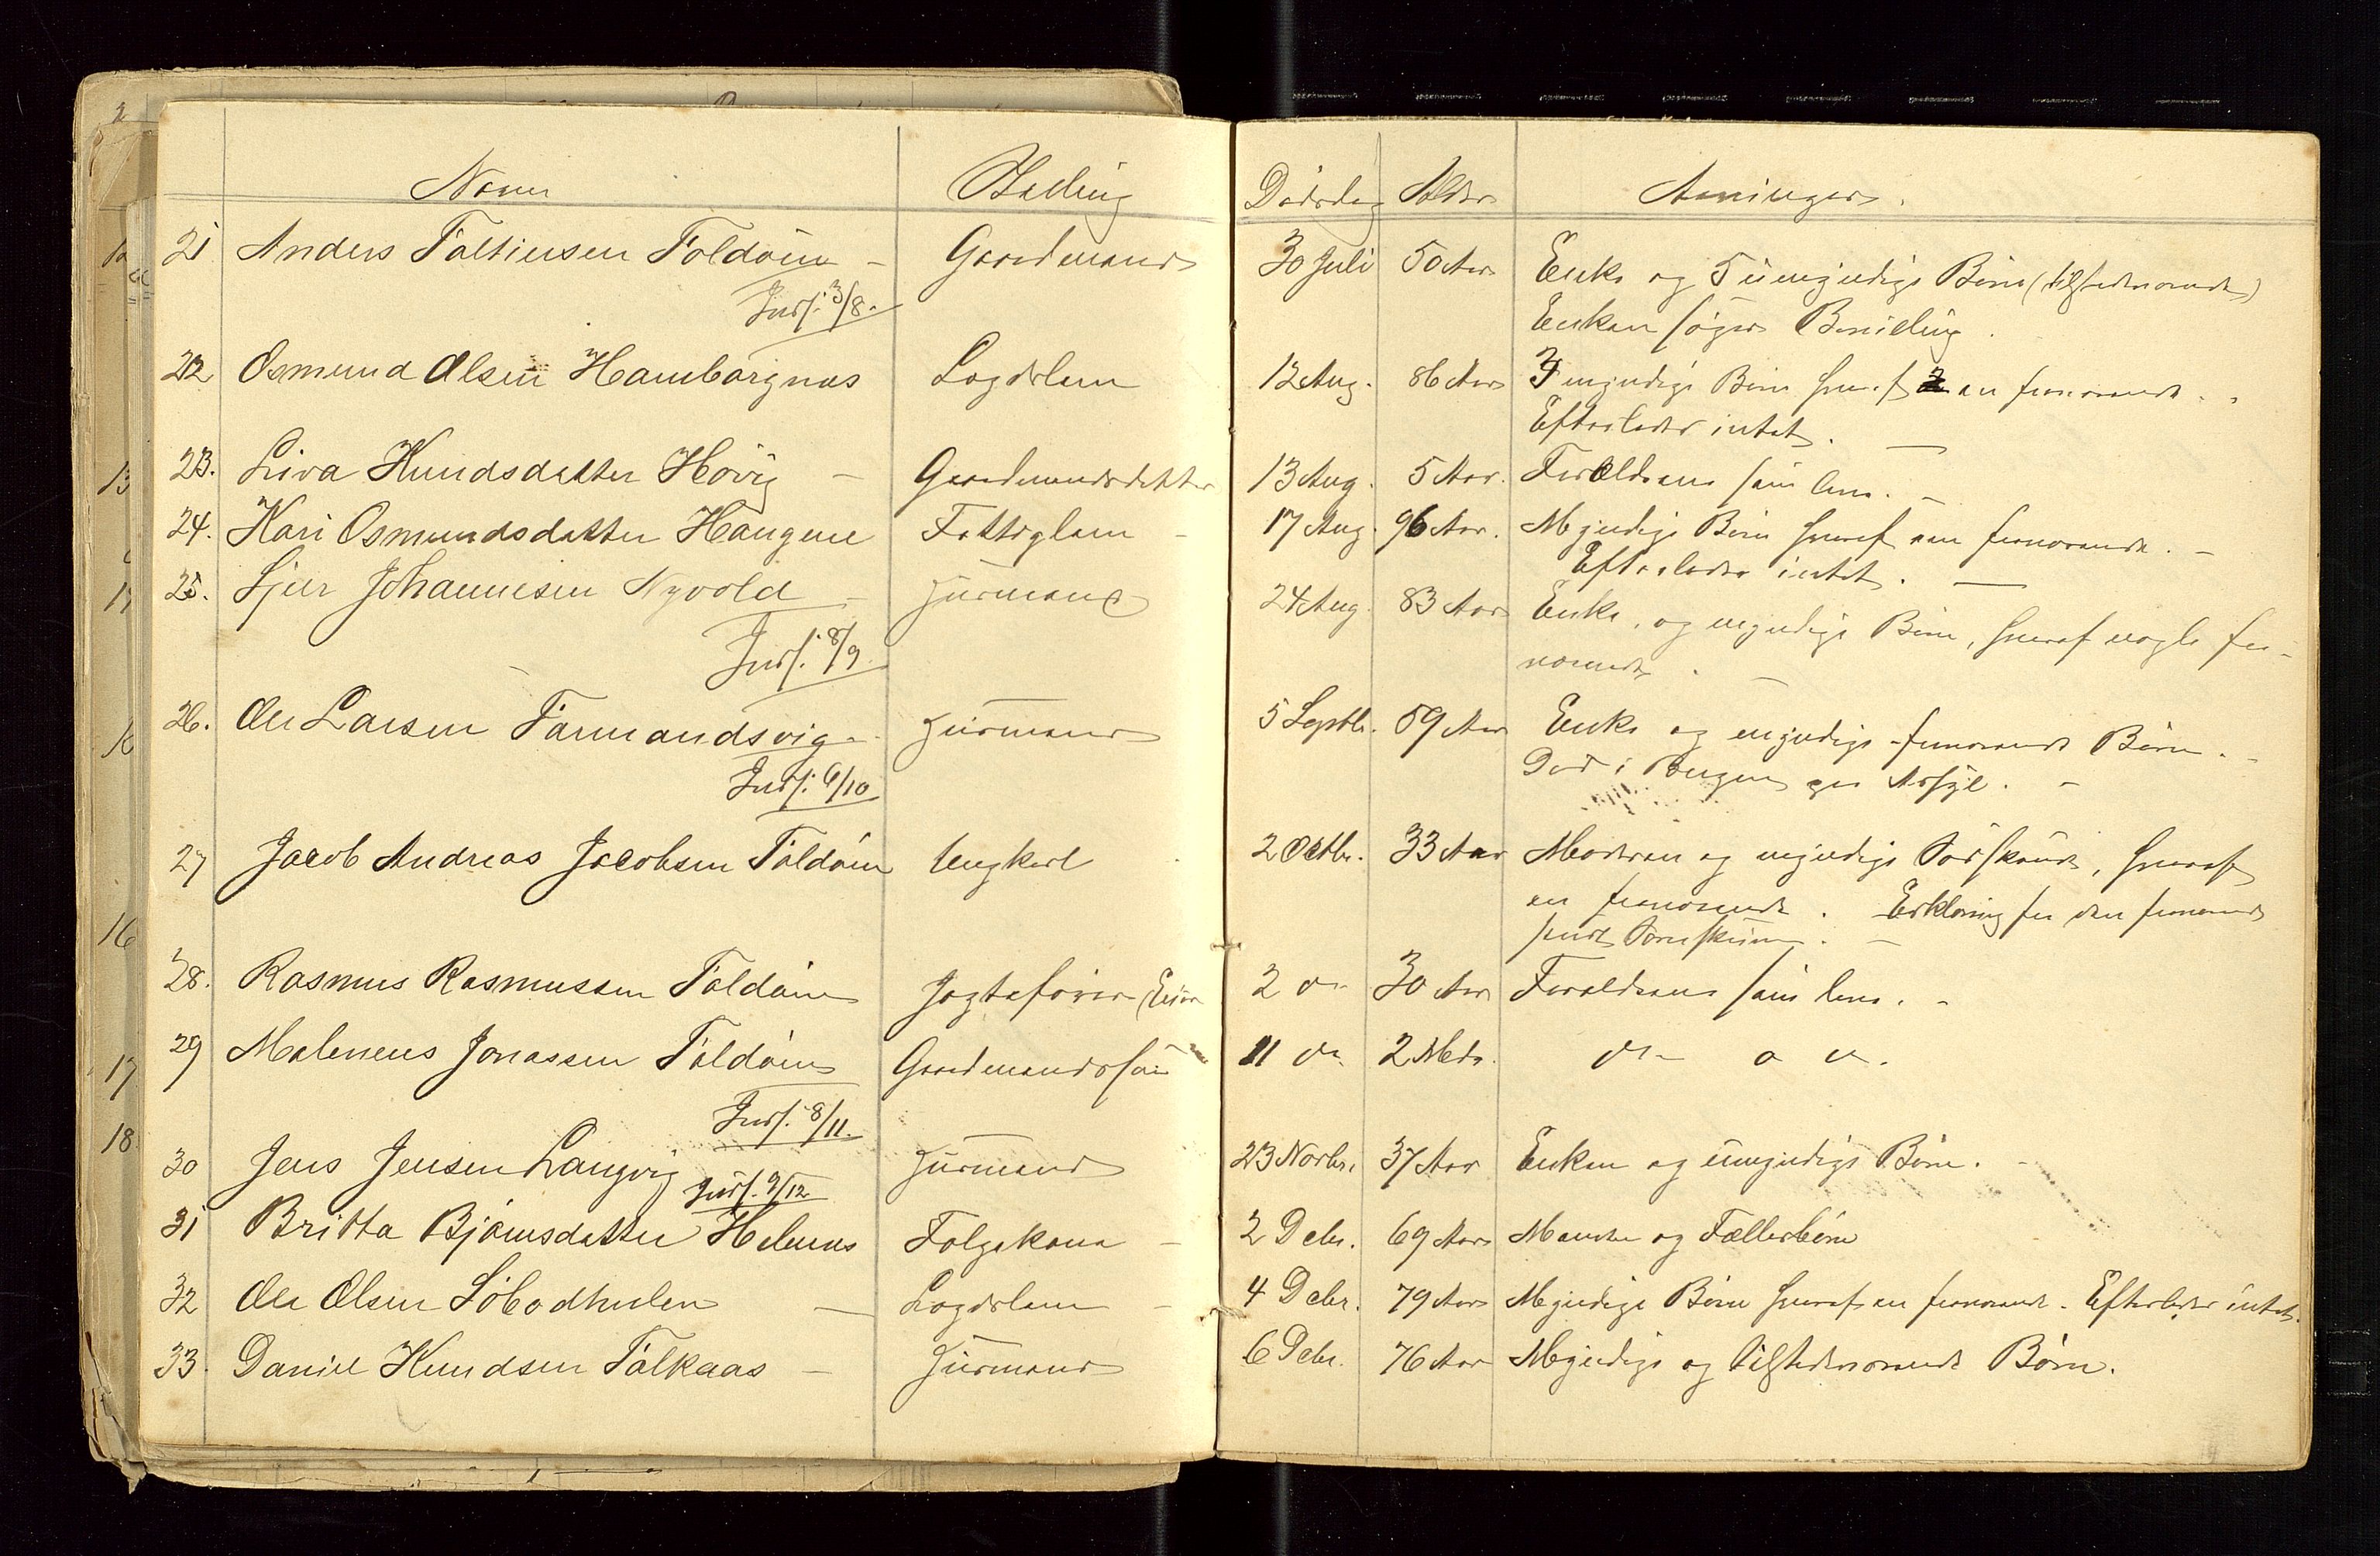 Navn Stilling Dødsdag Alder Arvinger.
21 Anders Tolleivsen Toldøen – Gaardmand 30 Juli 50 Aar Enke og 5 umyndige Børn (tilstedeværende)
Inds. 3/8. Enken søger Bevilling.
22 Osmund Olsen Hamborgnæs Lægdslem 12 Aug. 86 Aar 3 myndige Børn hvoraf en fraværende.
Efterlader intet. –
23. Liva Knudsdatter Høvig – Gaardmandsdatter 13 Aug. 5 Aar. Forældrene som leve. –
24. Kari Osmundsdatter Haugene Fattiglem – 17 Aug. 96 Aar. Myndige Børn hvoraf een fraværende. –
Efterlader intet. –
25. Sjur Johannesen Nyvold – Huusmand 24 Aug. 83 Aar Enke, og myndige Børn, hvoraf nogle fra-
Inds. 8/9. værende. –
26. Ole Larsen Tarmandsvig – Huusmand 5 Septbr. 59 Aar Enke og myndige fraværende Børn. –
Inds. 6/10 Død i Bergen paa Asyl. –
27 Jacob Andreas Jacobsen Toldøen Ungkarl 2 Octbr. 33 Aar Moderen og myndige Sødskende, hvoraf
en fraværende. Erklæring fra den fraværende
sendt Sorenskriveren. –
28. Rasmus Rasmussen Toldøen Jagtefører 2 do 30 Aar Forældrene som leve. –
29 Maleneus Jonassen Toldøen Gaardmandssøn 11 do 2 Mdr. do – o do.
Inds. 8/11.
30 Jens Jensen Langvig Huusmand 23 Novbr. 37 Aar Enken og umyndige Børn. –
Inds. 9/12
31 Britta Bjørnsdatter Helvnæs Folgekone – 2 Decbr. 69 Aar Manden og Fællesbørn
32 Ole Olsen Söbodhulen – Lægdslem – 4 Decbr. 79 Aar Myndige Børn hvoraf en fraværende. Efterlader intet.
33. Daniel Knudsen Tolkaas – Huusmand 6 Decbr. 76 Aar Myndige og tilstedeværende Børn.
13
16
17
18